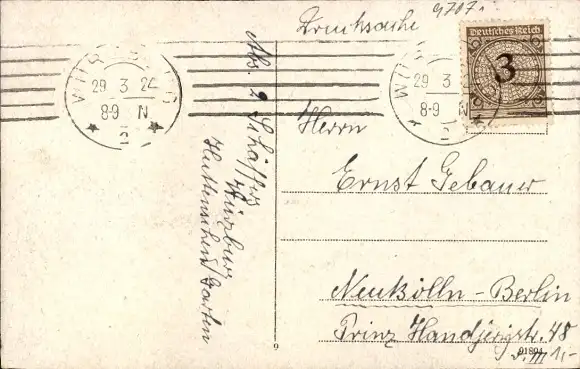 Drucksache
9707.
Deutsches Reich
3
29 3 24
8-9 N
2
29 3
8-9 N
2
Abs. L. Schäffer
Würzburg
Herrn
Ernst Gebauer
Neukölln - Berlin
Prinz Handjerystr. 48
9